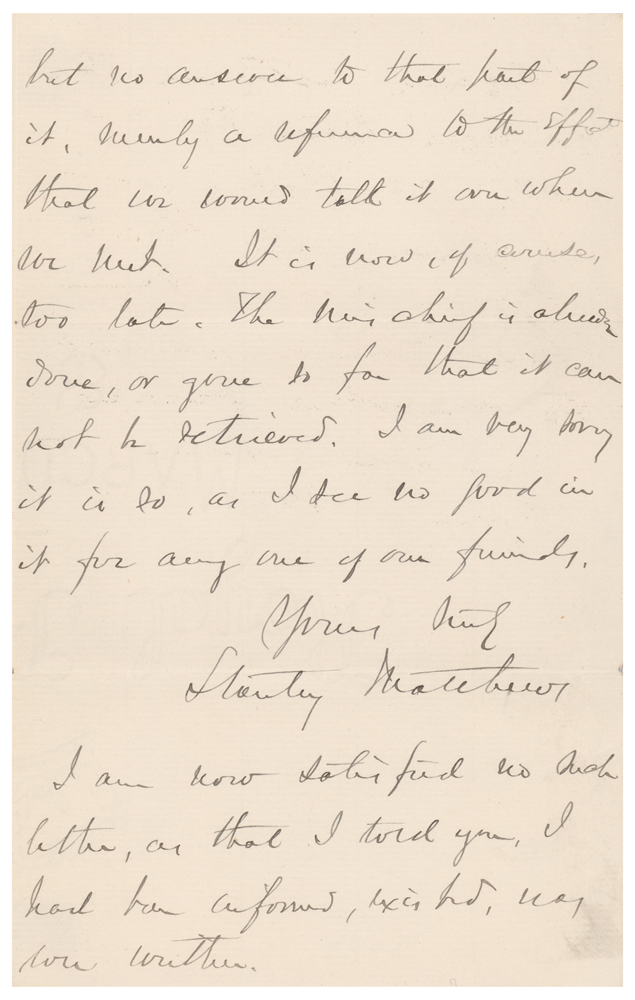 but no answer to that part of
it, merely a reference to the effect
that we would talk it over when
we met. It is now, of course,
too late. The mischief is already
done, or gone so far that it can
not be retrieved. I am very sorry
it is so, as I see no good in
it for any one of our friends.
Yours truly
Stanley Matthews
I am now satisfied no such
letter, as that I told you, I
had been informed, existed, was
ever written.